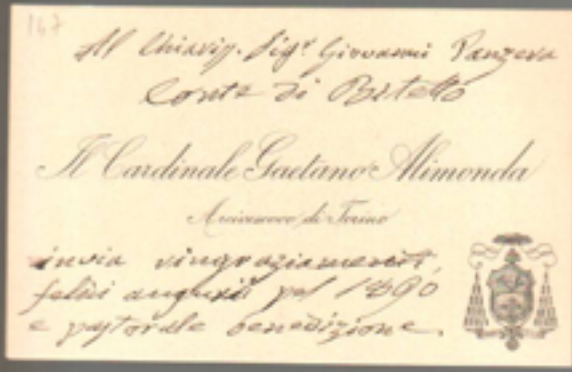 147
Al Chiariss. Sigr Giovanni Panzera
Conte di Bitetto
Il Cardinale Gaetano Alimonda
Arcivescovo di Torino
invia ringraziamenti,
felici augurii pel 1890
e pastorale benedizione.